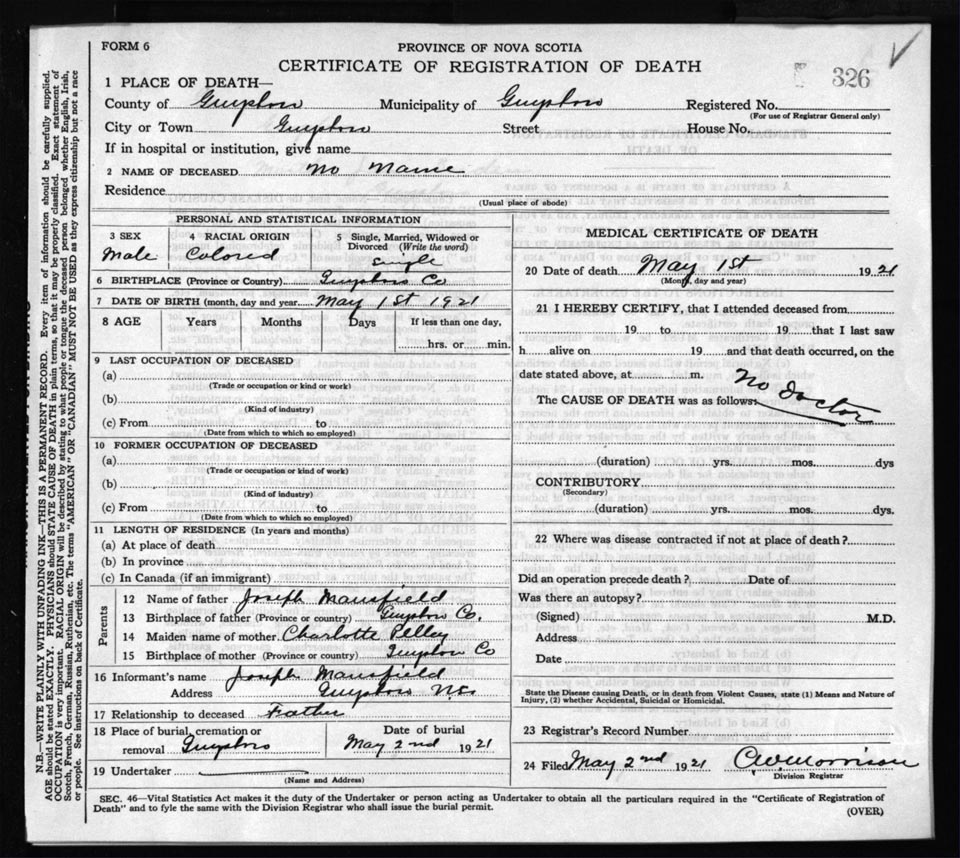 FORM 6
PROVINCE OF NOVA SCOTIA
CERTIFICATE OF REGISTRATION OF DEATH
326
1 PLACE OF DEATH—
County of Guysboro Municipality of Guysboro Registered No.
(For use of Registrar General only)
City or Town Guysboro Street House No.
If in hospital or institution, give name
2 NAME OF DECEASED No Name
Residence
(Usual place of abode)
PERSONAL AND STATISTICAL INFORMATION
3 SEX 4 RACIAL ORIGIN 5 Single, Married, Widowed or Divorced (Write the word)
Male Colored Single
6 BIRTHPLACE (Province or Country) Guysboro Co
7 DATE OF BIRTH (month, day and year) May 1st 1921
8 AGE Years Months Days If less than one day,
hrs. or min.
9 LAST OCCUPATION OF DECEASED
(a)
(Trade or occupation or kind of work)
(b)
(Kind of industry)
(c) From to
(Date from which to which so employed)
10 FORMER OCCUPATION OF DECEASED
(a)
(Trade or occupation or kind of work)
(b)
(Kind of industry)
(c) From to
(Date from which to which so employed)
11 LENGTH OF RESIDENCE (In years and months)
(a) At place of death
(b) In province
(c) In Canada (if an immigrant)
Parents
12 Name of father Joseph Mansfield
13 Birthplace of father (Province or country) Guysboro Co.
14 Maiden name of mother Charlotte Pelley
15 Birthplace of mother (Province or country) Guysboro Co
16 Informant's name Joseph Mansfield
Address Guysboro N.S.
17 Relationship to deceased Father
18 Place of burial, cremation or removal Guysboro Date of burial May 2nd 1921
19 Undertaker
(Name and Address)
MEDICAL CERTIFICATE OF DEATH
20 Date of death May 1st 1921
(Month, day and year)
21 I HEREBY CERTIFY, that I attended deceased from
19 to 19 that I last saw
h alive on 19 and that death occurred, on the
date stated above, at m.
The CAUSE OF DEATH was as follows: No Doctor
(duration) yrs. mos. dys
CONTRIBUTORY
(Secondary)
(duration) yrs. mos. dys.
22 Where was disease contracted if not at place of death?
Did an operation precede death? Date of
Was there an autopsy?
(Signed) M.D.
Address
Date
State the Disease causing Death, or in death from Violent Causes, state (1) Means and Nature of
Injury, (2) whether Accidental, Suicidal or Homicidal.
23 Registrar's Record Number
24 Filed May 2nd 1921 C.W. Morrison
Division Registrar
SEC. 46—Vital Statistics Act makes it the duty of the Undertaker or person acting as Undertaker to obtain all the particulars required in the "Certificate of Registration of
Death" and to fyle the same with the Division Registrar who shall issue the burial permit.
(OVER)
N.B.—WRITE PLAINLY WITH UNFADING INK—THIS IS A PERMANENT RECORD. Every item of information should be carefully supplied.
AGE should be stated EXACTLY. PHYSICIANS should STATE CAUSE OF DEATH in plain terms, so that it may be properly classified. Exact statement of
OCCUPATION is very important. RACIAL ORIGIN will be described by stating to what people or tongue the deceased person belonged whether English, Irish,
Scotch, French, German, Russian, Ruthenian, etc. The terms "AMERICAN" OR "CANADIAN" MUST NOT BE USED as they express citizenship but not a race
or people. See instructions on back of Certificate.